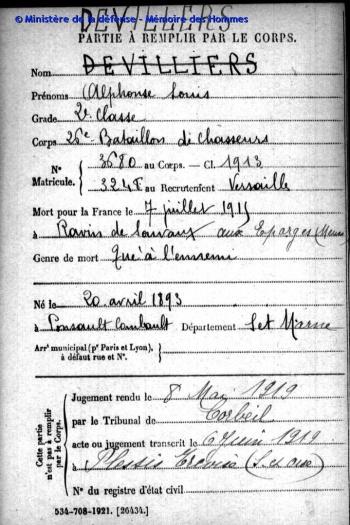 DEVILLERS
© Ministère de la défense - Mémoire des Hommes
PARTIE À REMPLIR PAR LE CORPS.
Nom DEVILLIERS
Prénoms Alphonse Louis
Grade 2e classe
Corps 26e Bataillon de Chasseurs
N° Matricule. { 3680 au Corps. — Cl. 1913
3248 au Recrutement Versaille
Mort pour la France le 7 juillet 1915
à Ravin de aux Eparges (Meuse
Genre de mort Tué à l'ennemi
Né le 20 avril 1893
à Ponsault Combault Département Set Marne
Arr' municipal (p' Paris et Lyon), à défaut rue et N°.
Cette partie n'est pas à remplir par le Corps.
Jugement rendu le 8 Mai 1919
par le Tribunal de Corbeil
acte ou jugement transcrit le 6 Juin 1919
à Plessis Trevise (S. et Oise)
N° du registre d'état civil
534-708-1921. [26434.]